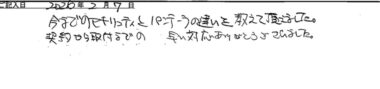 ご記入日 2020年2月7日
今までのセキュリティとパンテーラの違いを教えて頂きました。
契約から取付までの 早い対応ありがとうございました。